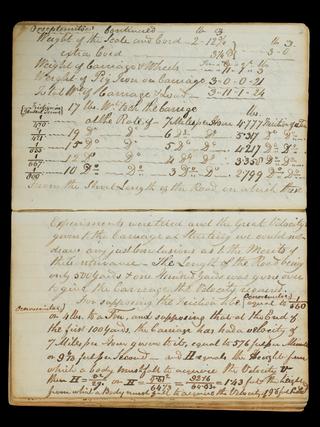 Descriptions Continued
lb 3
Weight of the Scale and Cord 2-12¾ lb 3
extra Cord 3¼ 3-0
Weight of Carriage & Wheels 11-1-3
Weight of Pig Iron on Carriage 3-0-0-21
Total Wt of Carriage & Load 3-11-1-24
17 lb. Wt. took the Carriage lbs.
1/470 at the Rate of 7 Miles per Hour 4777 Friction
19 Do 6 Do Do 5317 Do Do
15 Do 5 Do Do 4217 Do Do
12 Do 4 Do Do 3358 Do Do
10 Do 3 Do Do 2799 Do Do
From the Short Length of the Road, on which these
Experiments were tried and the great Velocity
given to the Carriage at Starting we could not
draw any just conclusions as to the Merits of
this contrivance. The Length of the Road being
only 500 Yards & one Hundred Yards was gone over
to give the Carriage the Velocity required.
For supposing the Friction to be equal to 1/560
or 4 lbs. to a Ton, and supposing that at the End of
the first 100 Yards, the Carriage has had a Velocity of
7 Miles per Hour given to it, equal to 576 feet per Minute
or 9 6/10 feet per Second — and H equals the Height from
which a body must fall to acquire the Velocity v
then H = v²/2g or H =
= 1.43 feet the height
from which a Body must fall to acquire the Velocity of 9.6 feet